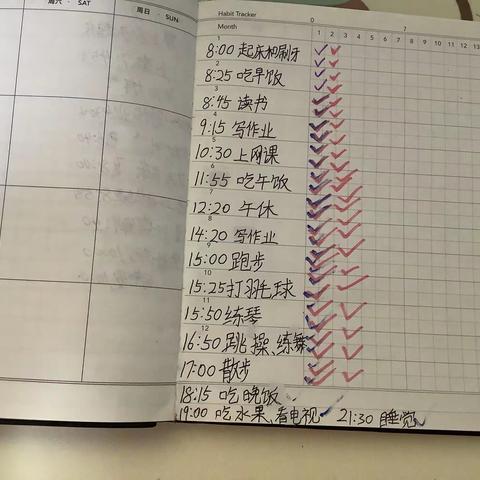 周六 · SAT
周日 · SUN
Habit Tracker
0 7
1 2 3 4 5 6 7 8 9 10 11 12 13
1
8:00 起床和刷牙
2
8:25 吃早饭
3
8:45 读书
4
9:15 写作业
5
10:30 上网课
6
11:55 吃午饭
7
12:20 午休
8
14:20 写作业
9
15:00 跑步
10
15:25 打羽毛球
11
15:50 练琴
12
16:50 跳操、练舞
17:00 散步
18:15 吃晚饭
19:00 吃水果、看电视 21:30 睡觉